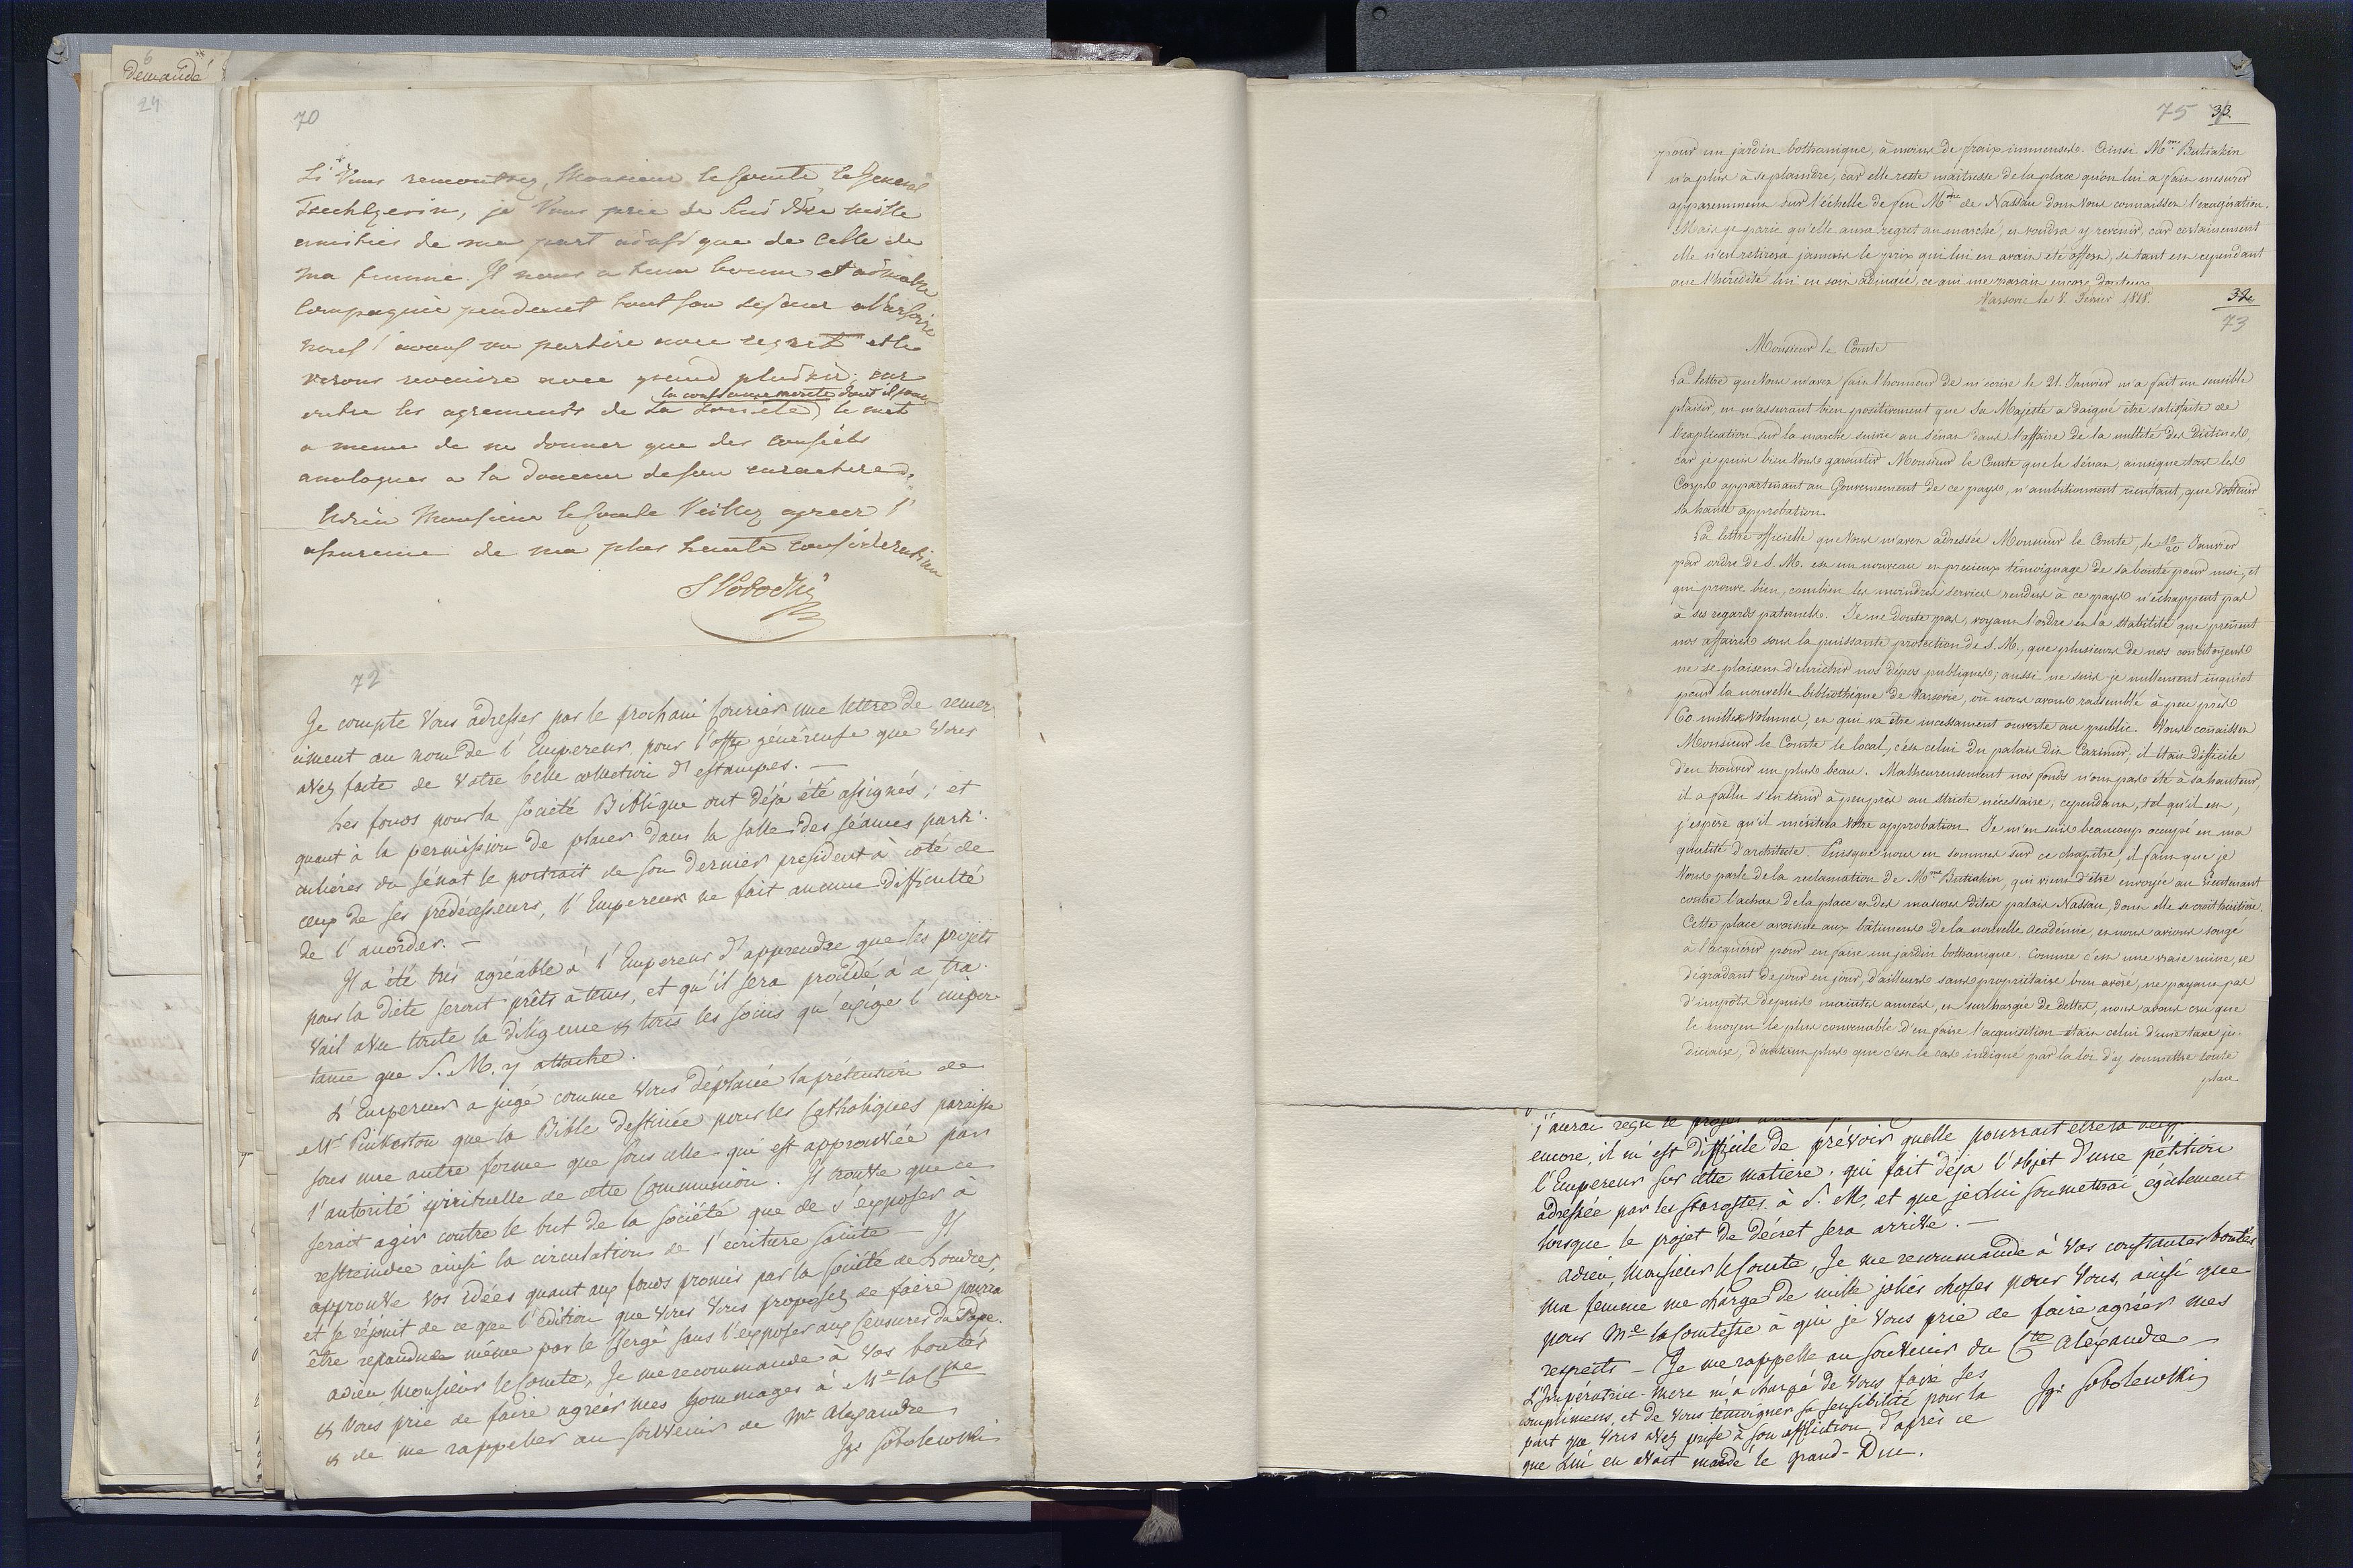 demandé
24
70
Si Vous remontrez, Monsieur le Comte le General
je Vous prie de Lui dire mille
amitiés de ma part ainsi que de celle de
ma femme. Il nous a tenu bonne et aimable
compagnie pendant tout son sejour
nous l'avons vu partire avec regret et le
verons revenire avec grand plaisir; car
la confiance merite dont il jouit
outre les agrements de la Societé, le met
a meme de ne donner que des conseils
analogues a la douceur de son caractere.
Adieu Monsieur le Comte Veillez agreer l'
assurence de ma plus haute consideration
72
Je compte Vous adresser par le prochain courier une lettre de remer
ciment au nom de l'Empereur pour l'offre généreuse que Vous
avez faite de Votre belle collection d'estampes. —
Les fonds pour la Société Biblique ont déjà été assignés; et
quant à la permission de placer dans la salle des séances parti-
culières du Sénat le portrait de son dernier president à coté de
ceux de ses prédécesseurs, l'Empereur ne fait aucune difficulté
de l'accorder. —
Il a été très agréable à l'Empereur d'apprendre que les projets
pour la diète seront prêts à tems, et qu'il sera procédé à ce tra-
vail avec toute la diligence & tous les soins qu'exige l'impor-
tance que S. M. y attache.
L'Empereur a jugé comme Vous déplacée la prétention de
Mr Pinkerton que la Bible destinée pour les Catholiques paraisse
sous une autre forme que sous celle qui est approuvée par
l'autorité spirituelle de cette Communion. Il trouve que ce
serait agir contre le but de la société que de s'exposer à
restreindre ainsi la circulation de l'ecriture sainte — Il
approuve vos idées quant aux fonds promis par la Société de Londres,
et se réjouit de ce que l'édition que Vous Vous proposez de faire pourra
être repandue même par le Clergé sans l'exposer aux Censures du Pape.
adieu Monsieur le Comte, Je me recommande à vos bontés
& Vous prie de faire agréer mes hommages à Me la Ctesse
& de me rappeller au souvenir de Mr Alexandre
Ige Sobolewski
75 33
pour un jardin bothanique, à moins de fraix immenses. Ainsi Mme Butiakin
n'a plus à se plaindre, car elle reste maitresse de la place qu'on lui a fait mesurer
apparemment sur l'échelle de feu Mme de Nassau dont Vous connaissez l'exagération.
Mais je parie qu'elle aura regret au marché, et voudra y revenir, car certainement
elle n'en retirera jamais le prix qui lui en avait été offert, si tant est cependant
que l'hérédité lui en soit adjugée, ce qui me parait encore douteux
Varsovie le 8. Fevrier 1818.
32
73
Monsieur le Comte
La lettre que Vous m'avez fait l'honneur de m'ecrire le 21. Janvier m'a fait un sensible
plaisir, en m'assurant bien positivement que Sa Majesté a daigné être satisfaite de
l'explication sur la marche suivie au Sénat dans l'affaire de la nullité des Diétines,
car je puis bien Vous garantir Monsieur le Comte que le Sénat, ainsi que tous les
Corps appartenant au Gouvernement de ce pays, n'ambitionnent rien tant, que d'obtenir
sa haute approbation.
La lettre officielle que Vous m'avez adressée Monsieur le Comte, le 10/20 Janvier
par ordre de S. M. est un nouveau et precieux témoignage de sa bonté pour moi, et
qui prouve bien, combien les moindres services rendus à ce pays n'échappent pas
à ses regards paternels. Je ne doute pas, voyant l'ordre et la stabilité que prennent
nos affaires sous la puissante protection de S. M., que plusieurs de nos concitoyens
ne se plaisent d'enrichir nos dépos publiques; aussi ne suis je nullement inquiet
pour la nouvelle bibliothèque de Varsovie, où nous avons rassemblé à peu près
60 milles Volumes, et qui va être incessament ouverte au public. Vous connaissez
Monsieur le Comte le local, c'est celui du palais dit Cazimir, il était difficile
d'en trouver un plus beau. Malheureusement nos fonds n'ont pas été à sa hauteur,
il a fallu s'en tenir à peu près au stricte nécessaire, cependant, tel qu'il est,
j'espère qu'il méritera Votre approbation. Je m'en suis beaucoup occupé en ma
qualité d'architecte. Puisque nous en sommes sur ce chapitre, il faut que je
Vous parle de la reclamation de Mme Butiakin, qui vient d'être envoyée au Lieutenant
contre l'achat de la place et des masures dites palais Nassau, dont elle se croit héritière.
Cette place avoisine aux bâtiments de la nouvelle académie, et nous avions songé
à l'acquérir pour en faire un jardin bothanique. Comme c'est une vraie ruine, se
dégradant de jour en jour, d'ailleurs sans propriétaire bien avéré, ne payant pas
d'impôts depuis maintes années, et surchargée de dettes, nous avons cru que
le moyen le plus convenable d'en faire l'acquisition était celui d'une taxe ju-
diciaire, d'autant plus que c'est le cas indiqué par la loi d'y soumettre toute
place
j'aurai reçu le projet
encore, il m'est difficile de prévoir quelle pourrait être la
l'Empereur sur cette matière, qui fait déja l'objet d'une pétition
adressée par les Starostes à S. M. et que je Lui soumettrai également
lorsque le projet de décret sera arrivé. —
Adieu, Monsieur le Comte, Je me recommande à Vos constantes bontés,
ma femme me charge de mille jolies choses pour Vous, ainsi que
pour Me la Comtesse à qui je Vous prie de faire agréer mes
respects — Je me rappelle au souvenir du Cte Alexandre
Ige Sobolewski
L'Impératrice-Mere m'a chargé de Vous faire ses
complimens, et de Vous témoigner sa sensibilité pour la
part que Vous avez prise à son affliction d'après ce
que Lui en avait mandé le grand-Duc.